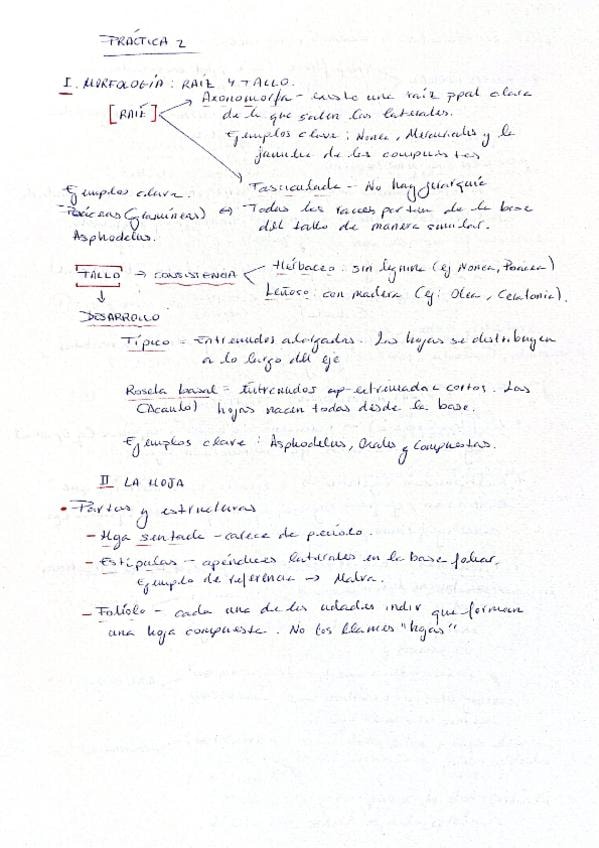 PRÁCTICA 2
I. MORFOLOGÍA: RAÍZ Y TALLO.
[RAÍZ]
Axonomorfa - existe una raíz ppal clara
de la que salen las laterales.
Ejemplos clave: Nonea, Mercurialis y la
familia de las compuestas
Fasciculada - No hay jerarquía
Todas las raíces parten de la base
del tallo de manera similar.
Ejemplos clave.
Poáceas (gramíneas) ⇔
Asphodelus.
TALLO → CONSISTENCIA
Herbáceo: sin lignina (ej Nonea, Poacea)
Leñoso: con madera (ej: Olea, Ceratonia).
↓
DESARROLLO
Típico = Entrenudos alargados. Las hojas se distribuyen
a lo largo del eje
Roseta basal = Entrenudos extremada cortos. Las
(Acanto) hojas nacen todas desde la base.
Ejemplos clave: Asphodelus, y Compuestas.
II LA HOJA
• Partes y estructuras
- Hoja sentada - carece de peciolo.
- Estípulas - apéndices laterales en la base foliar.
Ejemplo de referencia → Malva.
- Foliolo - cada una de las udades indiv que forman
una hoja compuesta. No los llames "hojas"